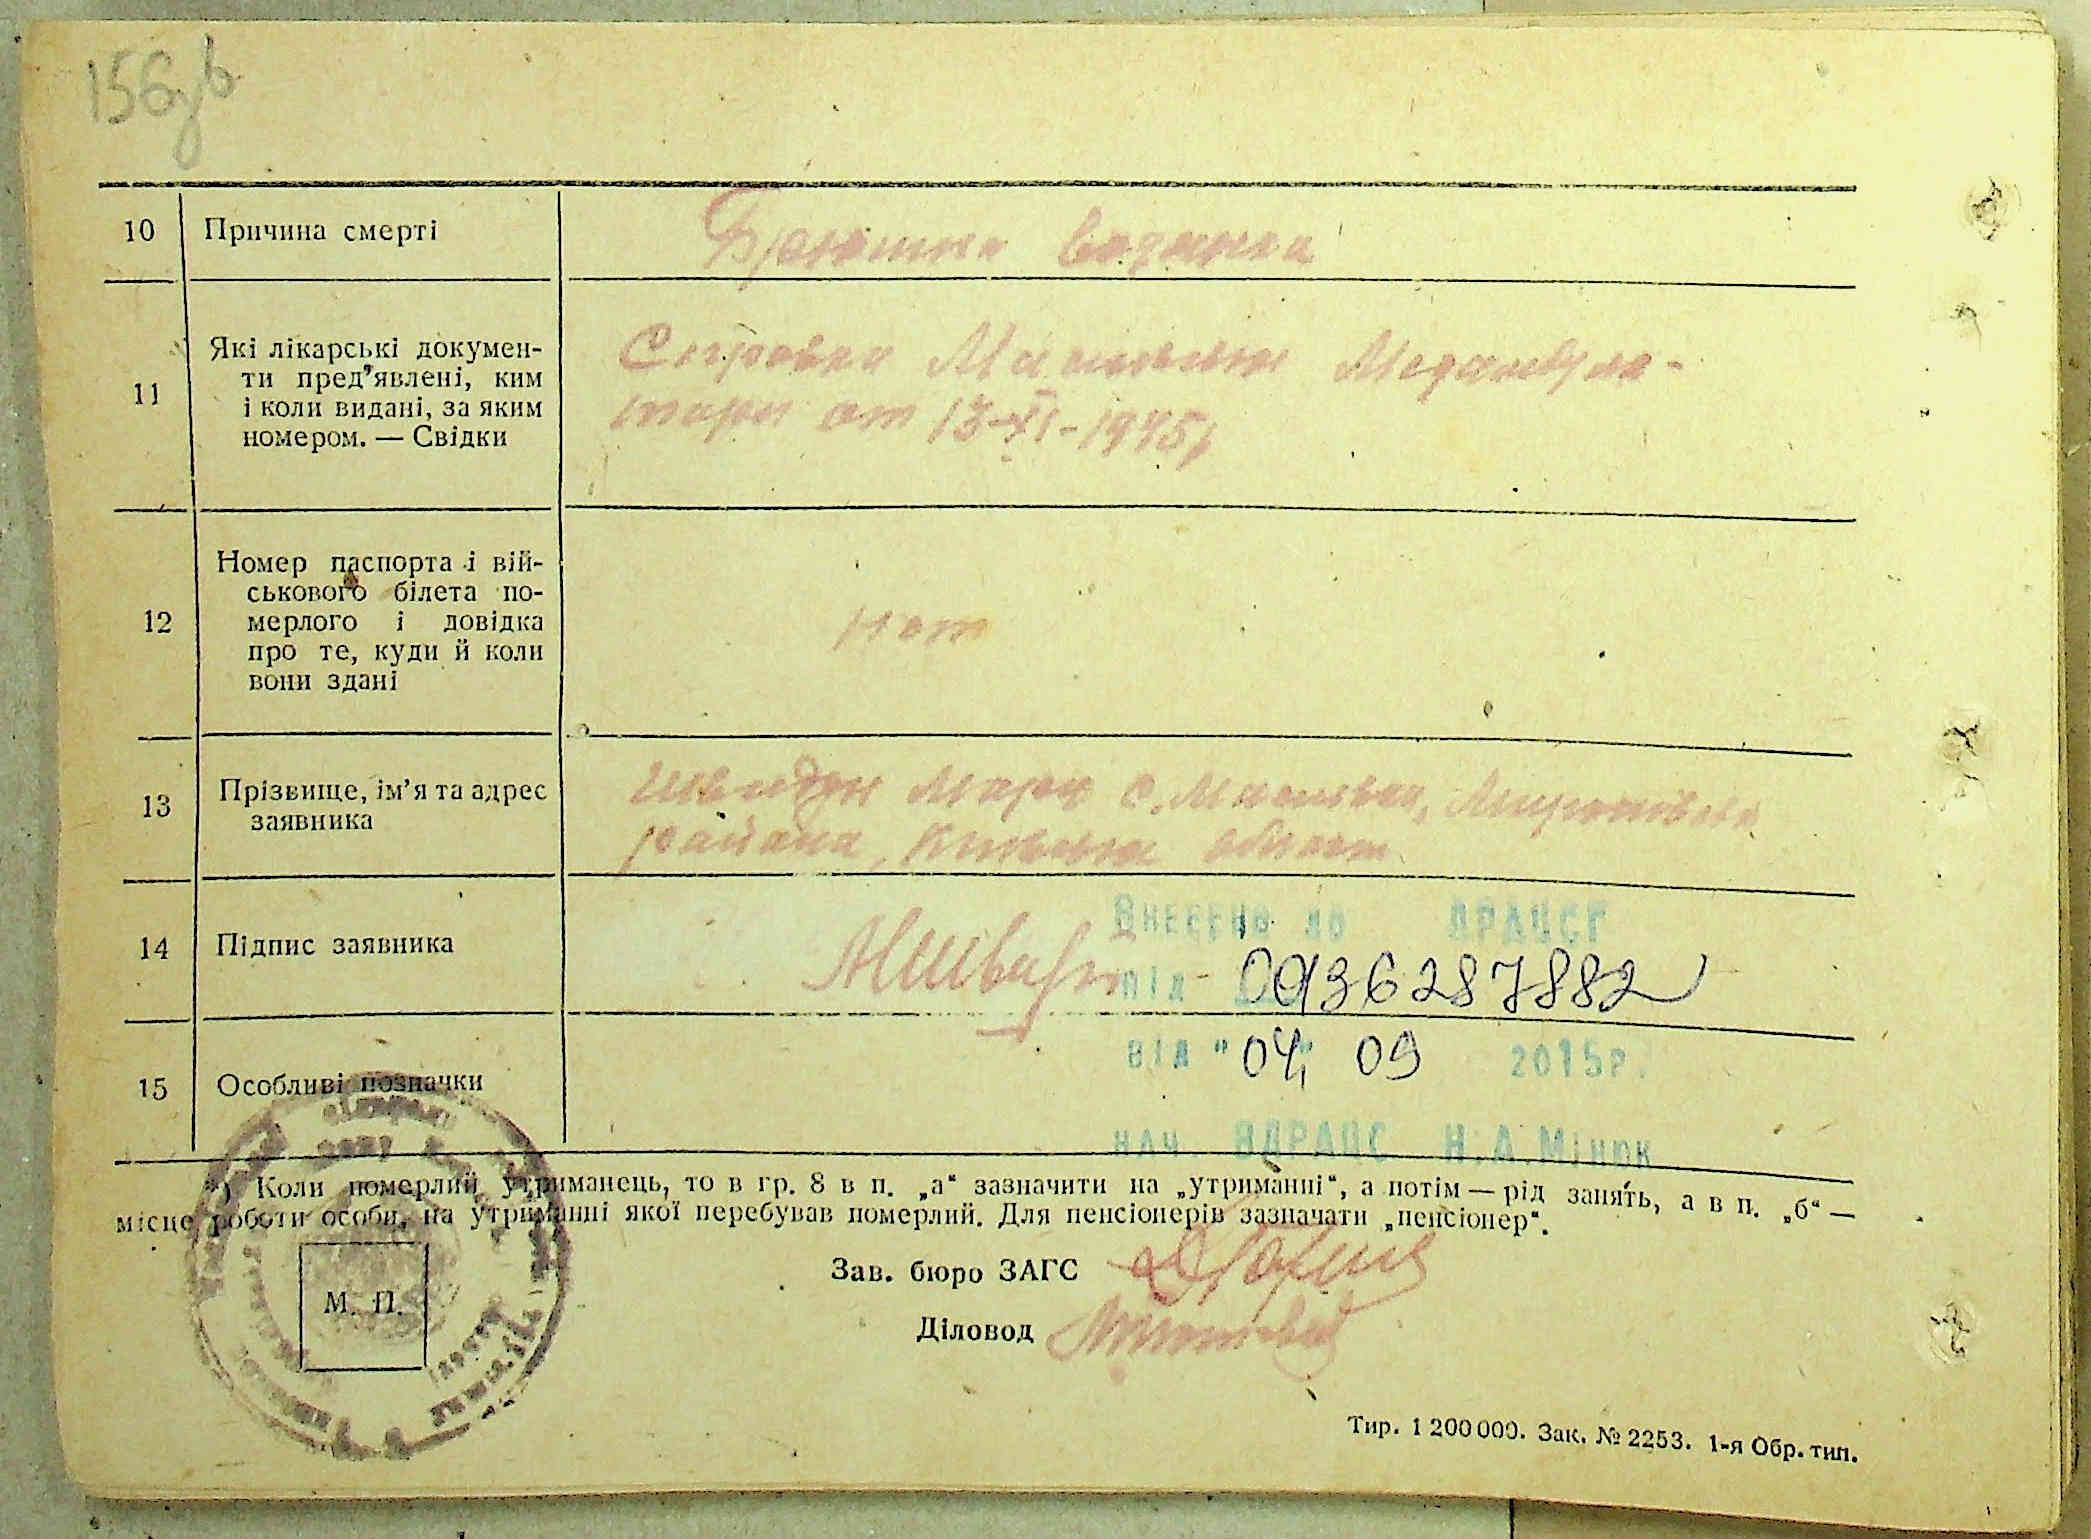 156зв
10 Причина смерті
водянка
11 Які лікарські докумен-
ти пред’явлені, ким
і коли видані, за яким
номером. — Свідки
Справка Масівської Медамбула-
тори от 13-XI-1945р
12 Номер паспорта і вій-
ськового білета по-
мерлого і довідка
про те, куди й коли
вони здані
нет
13 Прізвище, ім’я та адрес
заявника
Марк с.
района, область
14 Підпис заявника
Внесено до ДРАЦСГ
під 00136287882
15 Особливі позначки
від "04" 09 2015р.
нач. ВДРАЦС Н.А.Мінюк
*) Коли померлий утриманець, то в гр. 8 в п. „а“ зазначити на „утриманні“, а потім — рід занять, а в п. „б“ —
місце роботи особи, на утриманні якої перебував померлий. Для пенсіонерів зазначати „пенсіонер“.
Зав. бюро ЗАГС
Діловод
М. П.
Тир. 1 200 000. Зак. № 2253. 1-я Обр. тип.